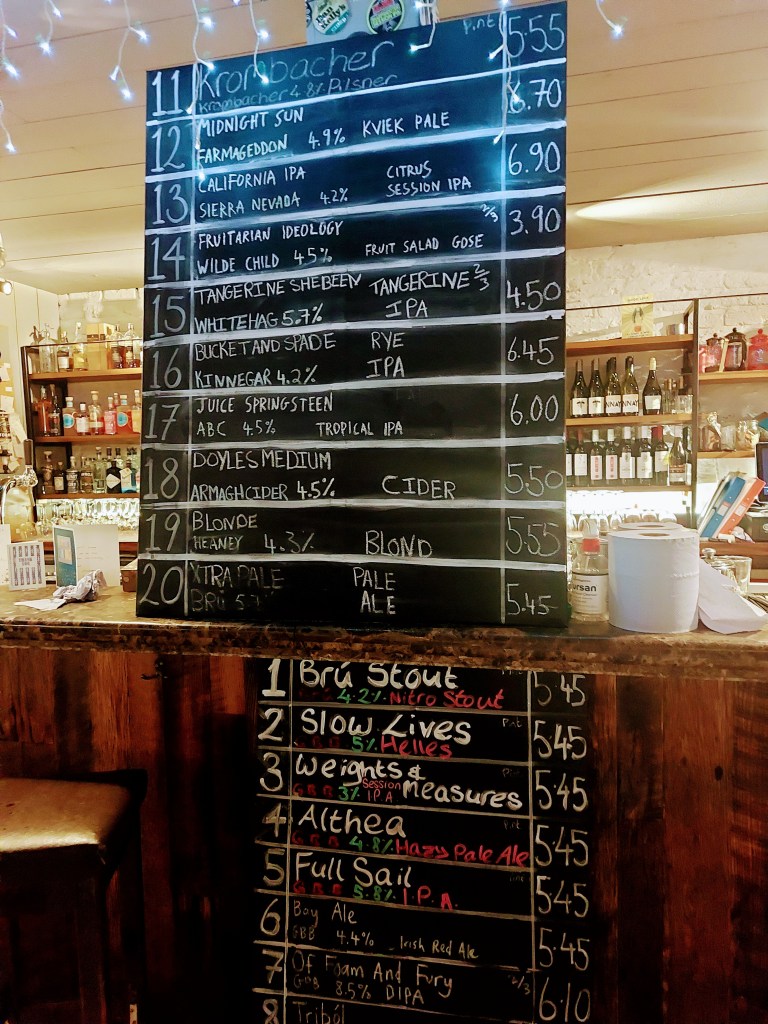 11 Krombacher Pint 5.55
Krombacher 4.8% Pilsner
12 MIDNIGHT SUN 6.70
FARMAGEDDON 4.9% KVIEK PALE
13 CALIFORNIA IPA CITRUS 6.90
SIERRA NEVADA 4.2% SESSION IPA
14 FRUITARIAN IDEOLOGY 2/3 3.90
WILDE CHILD 4.5% FRUIT SALAD GOSE
15 TANGERINE SHEBEEN TANGERINE 2/3 4.50
WHITEHAG 5.7% IPA
16 BUCKET AND SPADE RYE 6.45
KINNEGAR 4.2% IPA
17 JUICE SPRINGSTEEN 6.00
ABC 4.5% TROPICAL IPA
18 DOYLES MEDIUM 5.50
ARMAGH CIDER 4.5% CIDER
19 BLONDE 5.55
HEANEY 4.3% BLOND
20 XTRA PALE PALE 5.45
BRÚ ALE
1 Brú Stout 5.45
4.2% Nitro Stout
2 Slow Lives 5.45
5% Helles
3 Weights & Measures 5.45
3% Session IPA
4 Althea Pint 5.45
4.8% Hazy Pale Ale
5 Full Sail 5.45
5.8% I.P.A.
6 Boy Ale 5.45
4.4% Irish Red Ale
7 Of Foam And Fury 2/3 6.10
8.5% DIPA
8 Triból